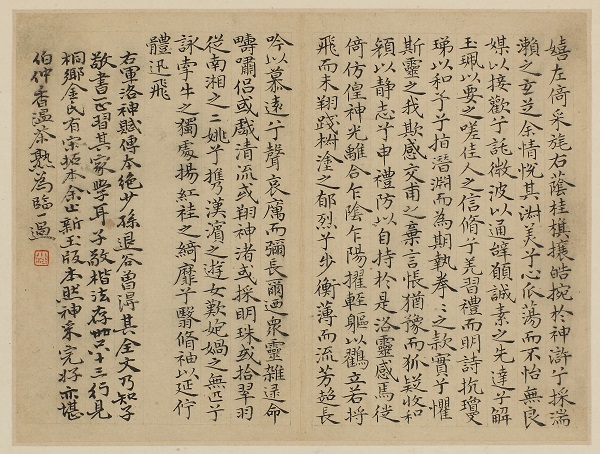 嬉左倚采旄右蔭桂旗攘皓捥於神滸兮採湍
瀨之玄芝余情悅其淑美兮心振蕩而不怡無良
媒以接歡兮託微波以通辭願誠素之先達兮解
玉珮以要之嗟佳人之信脩兮羌習禮而明詩抗瓊
珶以和予兮指潛淵而為期執拳〻之款實兮懼
斯靈之我欺感交甫之棄言悵猶豫而狐疑收和
顏以靜志兮申禮防以自持於是洛靈感焉徙
倚仿偟神光離合乍陰乍陽擢輕軀以鶴立若將
飛而未翔踐椒塗之郁烈兮步衡薄而流芳超長
吟以慕遠兮聲哀厲而彌長爾迺衆靈雜遝命
疇嘯侶或戲清流或翔神渚或採明珠或拾翠羽
從南湘之二姚兮攜漢濱之遊女歎媧之無匹兮
詠牽牛之獨處揚袿之綺靡兮翳脩袖以延佇
體迅飛
右軍洛神賦傳本絕少孫退谷曾得其全文乃知子
敬書正習其家學耳子敬楷法存世只十三行見
桐鄉金氏有宋拓本余出新玉版本然神采完好亦堪
伯仲香溫茶熟為臨一過